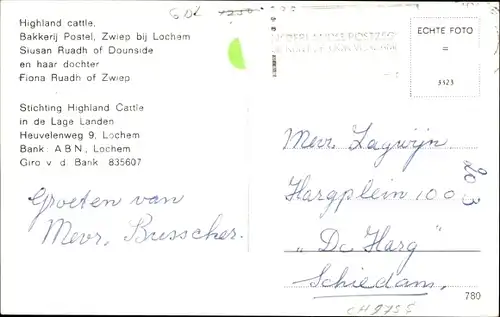 Highland cattle,
Bakkerij Postel, Zwiep bij Lochem
Siusan Ruadh of Dounside
en haar dochter
Fiona Ruadh of Zwiep
Stichting Highland Cattle
in de Lage Landen
Heuvelenweg 9, Lochem
Bank: A B N, Lochem
Giro v. d. Bank 835607
Groeten van
Mevr. Busscher.
ECHTE FOTO
=
3323
Mevr. Lagwijn
Hargplein 100
„De Harg"
Schiedam.
203
780